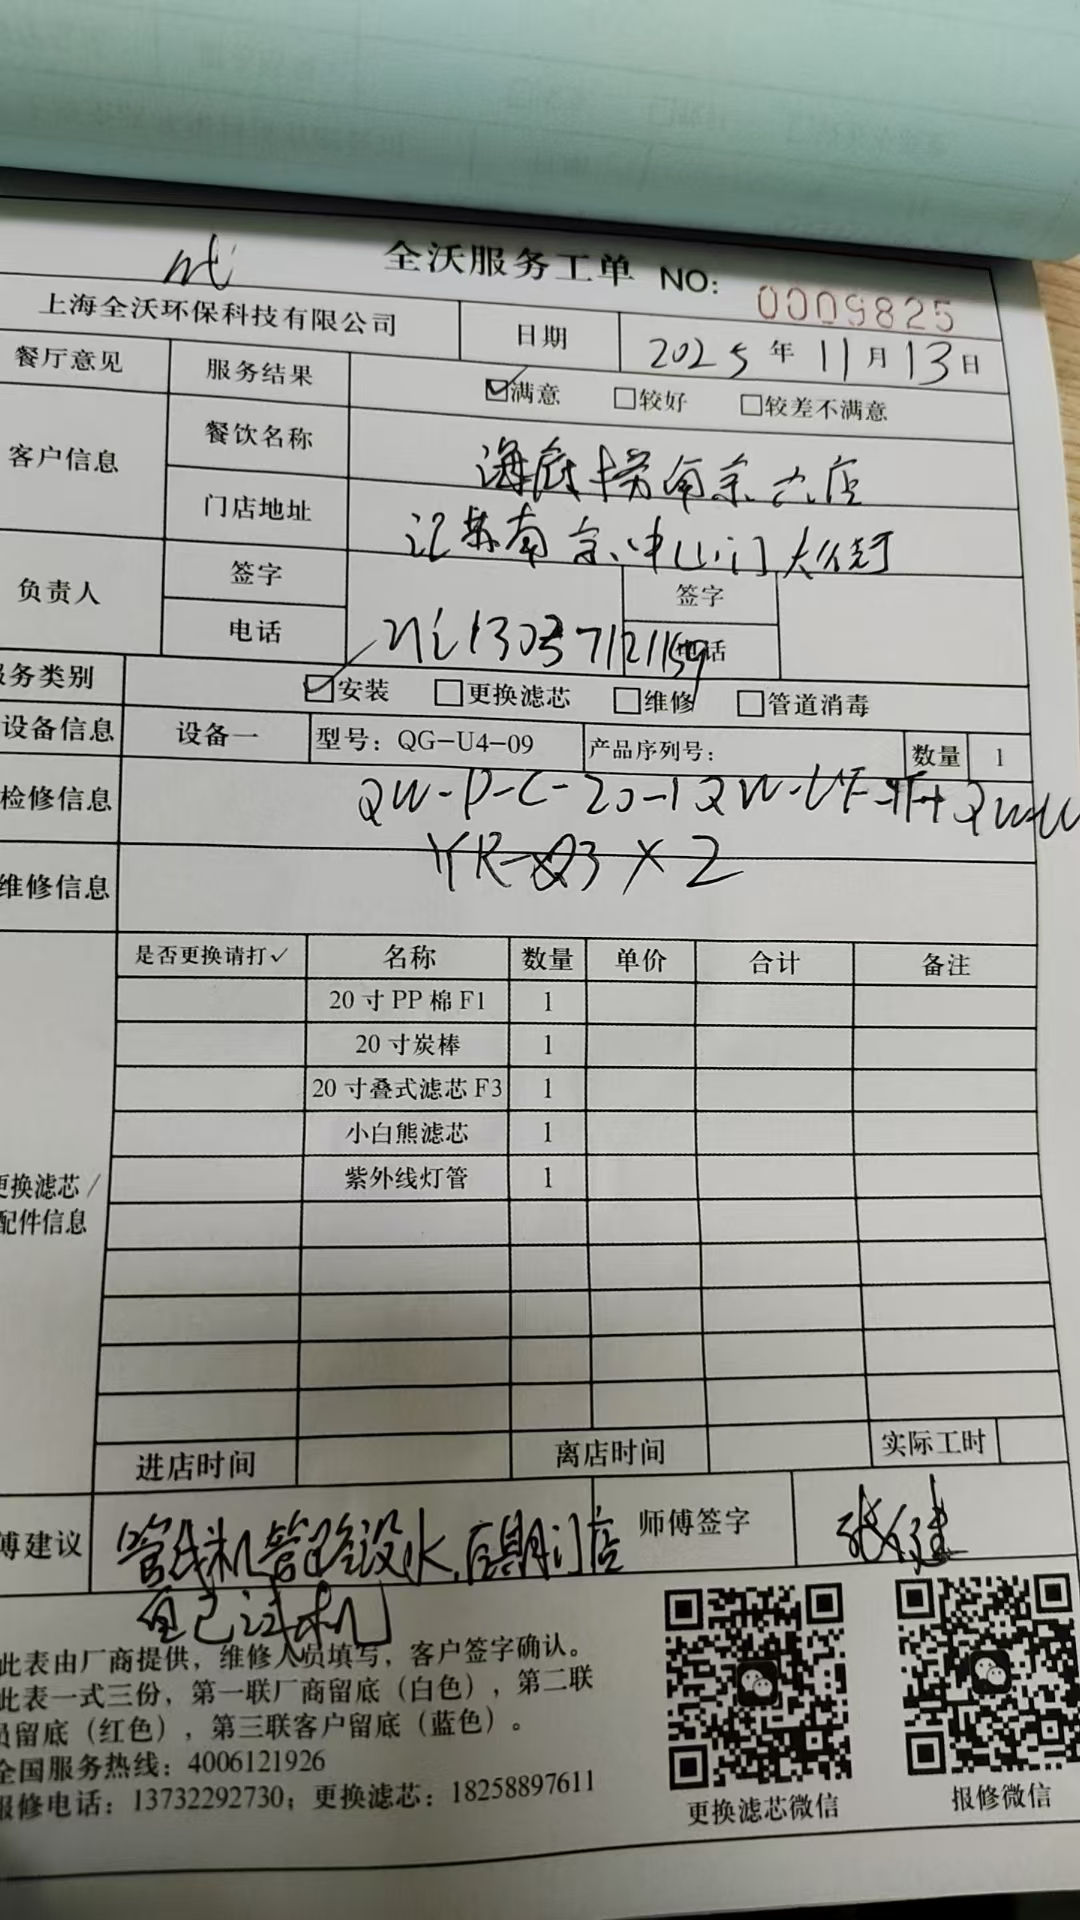 全沃服务工单 NO: 0009825
上海全沃环保科技有限公司 日期 2025年11月13日
餐厅意见 服务结果 ☑满意 □较好 □较差不满意
客户信息 餐饮名称 海底捞南京六店
门店地址 江苏南京中山门大街
负责人 签字 签字
电话 13037121159 电话
服务类别 ☑安装 □更换滤芯 □维修 □管道消毒
设备信息 设备一 型号：QG-U4-09 产品序列号： 数量 1
检修信息 QW-P-C-20-1 QW-UF-
YR-Q3×2
维修信息
是否更换请打✓ 名称 数量 单价 合计 备注
20寸PP棉F1 1
20寸炭棒 1
20寸叠式滤芯F3 1
小白熊滤芯 1
紫外线灯管 1
更换滤芯/
配件信息
进店时间 离店时间 实际工时
傅建议 管线机管路没水,后期门店 师傅签字 张健
自己试机
此表由厂商提供，维修人员填写，客户签字确认。
此表一式三份，第一联厂商留底（白色），第二联
员留底（红色），第三联客户留底（蓝色）。
全国服务热线：4006121926
报修电话：13732292730；更换滤芯：18258897611
更换滤芯微信 报修微信